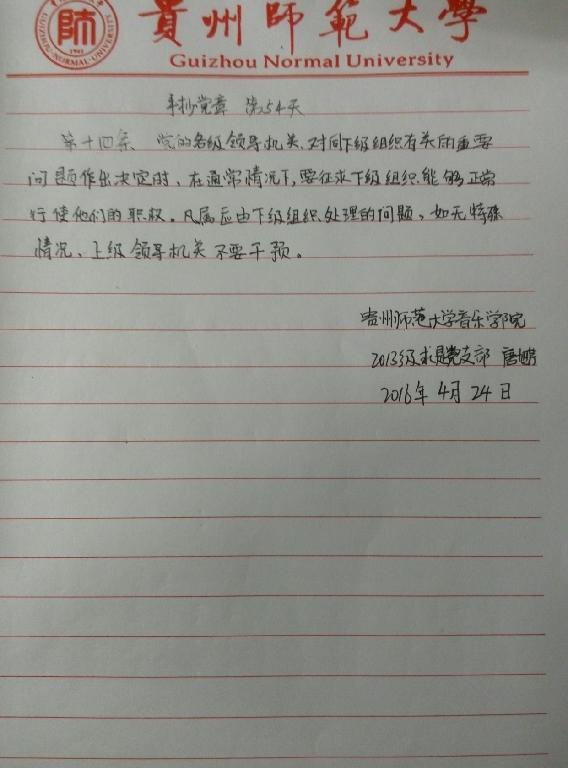 貴州師範大學
師
1941
GUIZHOU NORMAL UNIVERSITY
Guizhou Normal University
手抄党章 第54天
第十四条 党的各级领导机关、对同下级组织有关的重要
问题作出决定时、在通常情况下,要征求下级组织能够正常
行使他们的职权。凡属应由下级组织处理的问题、如无特殊
情况、上级领导机关不要干预。
贵州师范大学音乐学院
2013级求是党支部 唐
2016年4月24日